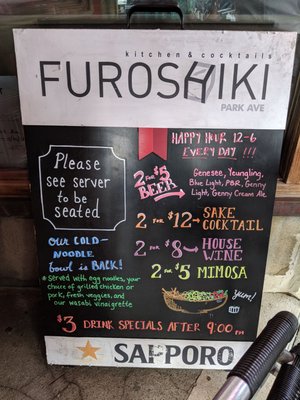 kitchen & cocktails
FUROSHIKI
PARK AVE
HAPPY HOUR 12-6
EVERY DAY !!!
Please
see server
to be
seated
2 FOR $5
BEER
Genesee, Youngling,
Blue Light, PBR, Genny
Light, Genny Cream Ale
2 FOR $12- SAKE
COCKTAIL
OUR COLD-
NOODLE
Bowl is BACK!
2 FOR $8- HOUSE
WINE
2 FOR $5 MIMOSA
Served with egg noodles, your
choice of grilled chicken or
pork, fresh veggies, and
our wasabi vinaigrette
yum!
$3 DRINK SPECIALS AFTER 9:00 PM
SAPPORO